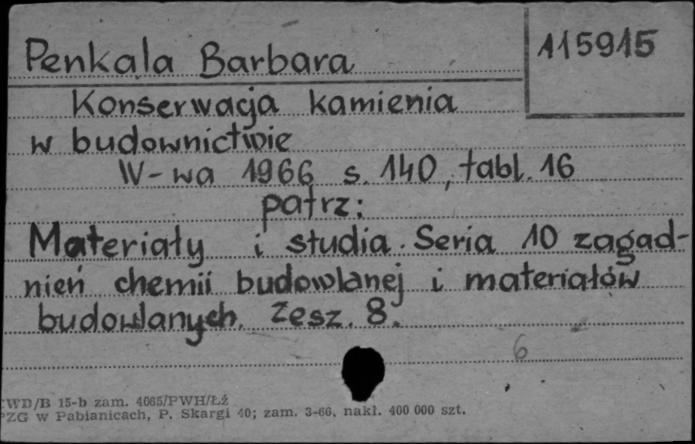 Penkala Barbara
115915
Konserwacja kamienia
w budownictwie
W-wa 1966 s. 140, tabl. 16
patrz:
Materiały i studia. Seria 10 zagad-
nień chemii budowlanej i materiałów
budowlanych. Zesz. 8.
6
WD/B 15-b zam. 4065/PWH/Łź
PZG w Pabianicach, P. Skargi 40; zam. 3-66, nakł. 400 000 szt.